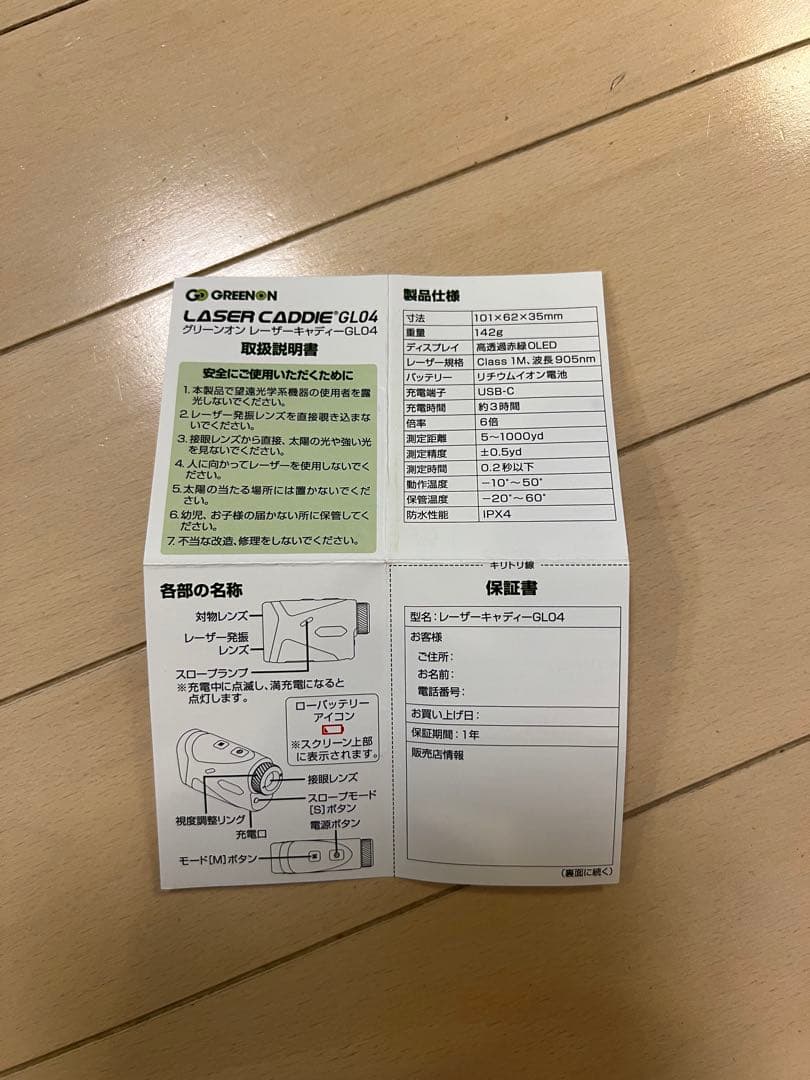 GREENON
LASER CADDIE®GL04
グリーンオン レーザーキャディーGL04
取扱説明書
安全にご使用いただくために
1. 本製品で望遠光学系機器の使用者を露
光しないでください。
2. レーザー発振レンズを直接覗き込まな
いでください。
3. 接眼レンズから直接、太陽の光や強い光
を見ないでください。
4. 人に向かってレーザーを使用しないでく
ださい。
5. 太陽の当たる場所には置かないでくだ
さい。
6. 幼児、お子様の届かない所に保管してく
ださい。
7. 不当な改造、修理をしないでください。
製品仕様
寸法 101×62×35mm
重量 142g
ディスプレイ 高透過赤緑OLED
レーザー規格 Class 1M、波長905nm
バッテリー リチウムイオン電池
充電端子 USB-C
充電時間 約3時間
倍率 6倍
測定距離 5〜1000yd
測定精度 ±0.5yd
測定時間 0.2秒以下
動作温度 −10°〜50°
保管温度 −20°〜60°
防水性能 IPX4
各部の名称
対物レンズ
レーザー発振
レンズ
スロープランプ
※充電中に点滅し、満充電になると
点灯します。
ローバッテリー
アイコン
※スクリーン上部
に表示されます。
接眼レンズ
スロープモード
[S]ボタン
視度調整リング
充電口
電源ボタン
モード[M]ボタン
キリトリ線
保証書
型名：レーザーキャディーGL04
お客様
ご住所：
お名前：
電話番号：
お買い上げ日：
保証期間：1年
販売店情報
（裏面に続く）